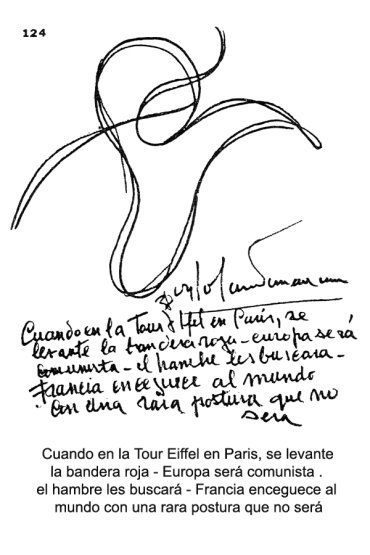 124
Cuando en la Tour Eiffel en París, se
levante la bandera roja - europa será
comunista - el hambre les buscara -
Francia enceguece al mundo
con una rara postura que no
sera
Cuando en la Tour Eiffel en Paris, se levante
la bandera roja - Europa será comunista .
el hambre les buscará - Francia enceguece al
mundo con una rara postura que no será